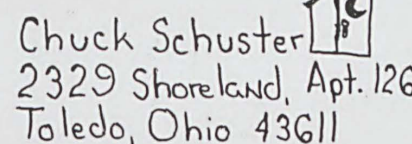 Chuck Schuster
2329 Shoreland, Apt. 126
Toledo, Ohio 43611